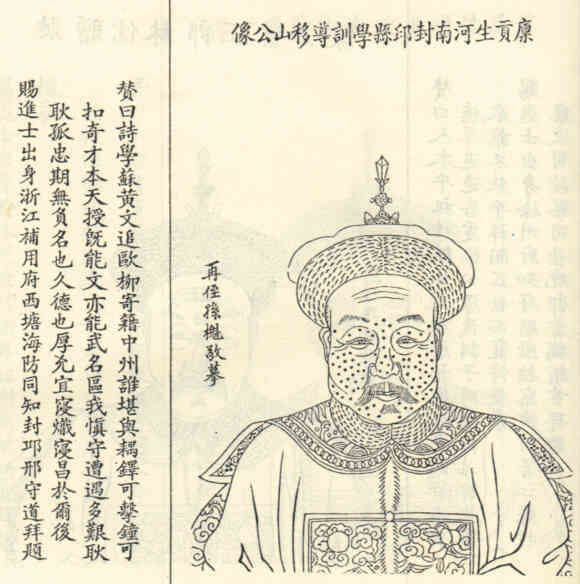 廪貢生河南封邱縣學訓導移山公像
再侄孫樾敬摹
贊曰詩學蘇黃文追歐柳寄籍中州誰堪與耦鐸可擊鐘可
扣奇才本天授既能文亦能武名區我慎守遭遇多艱耿
耿孤忠期無負名也久德也厚允宜寖熾寖昌於爾後
賜進士出身浙江補用府西塘海防同知封邛邢守道拜題